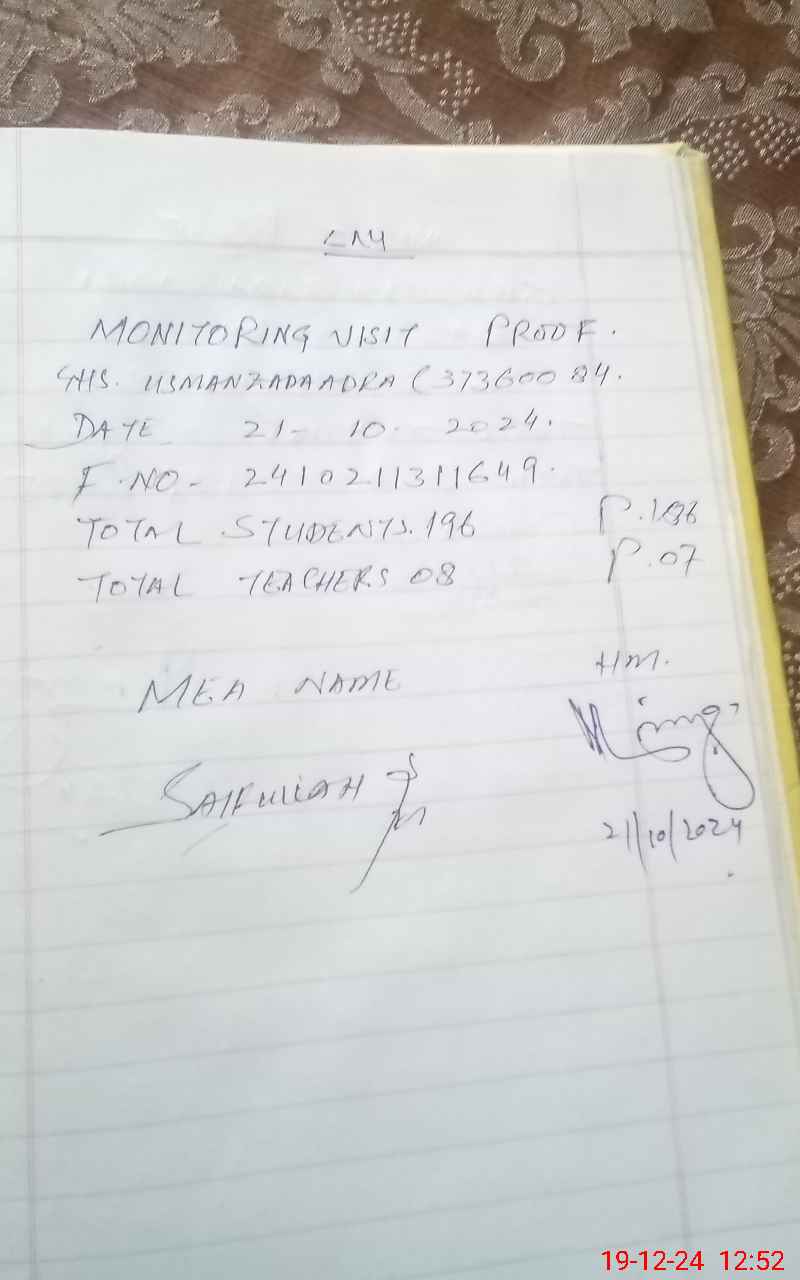 MONITORING VISIT PROOF.
GHS. USMANZADA ADRA (37360084.
DATE 21- 10. 2024.
F.NO- 2410211311649.
TOTAL STUDENTS. 196 P.186
TOTAL TEACHERS 08 P.07
MEA NAME HM.
SAIFULLAH
21/10/2024
19-12-24 12:52